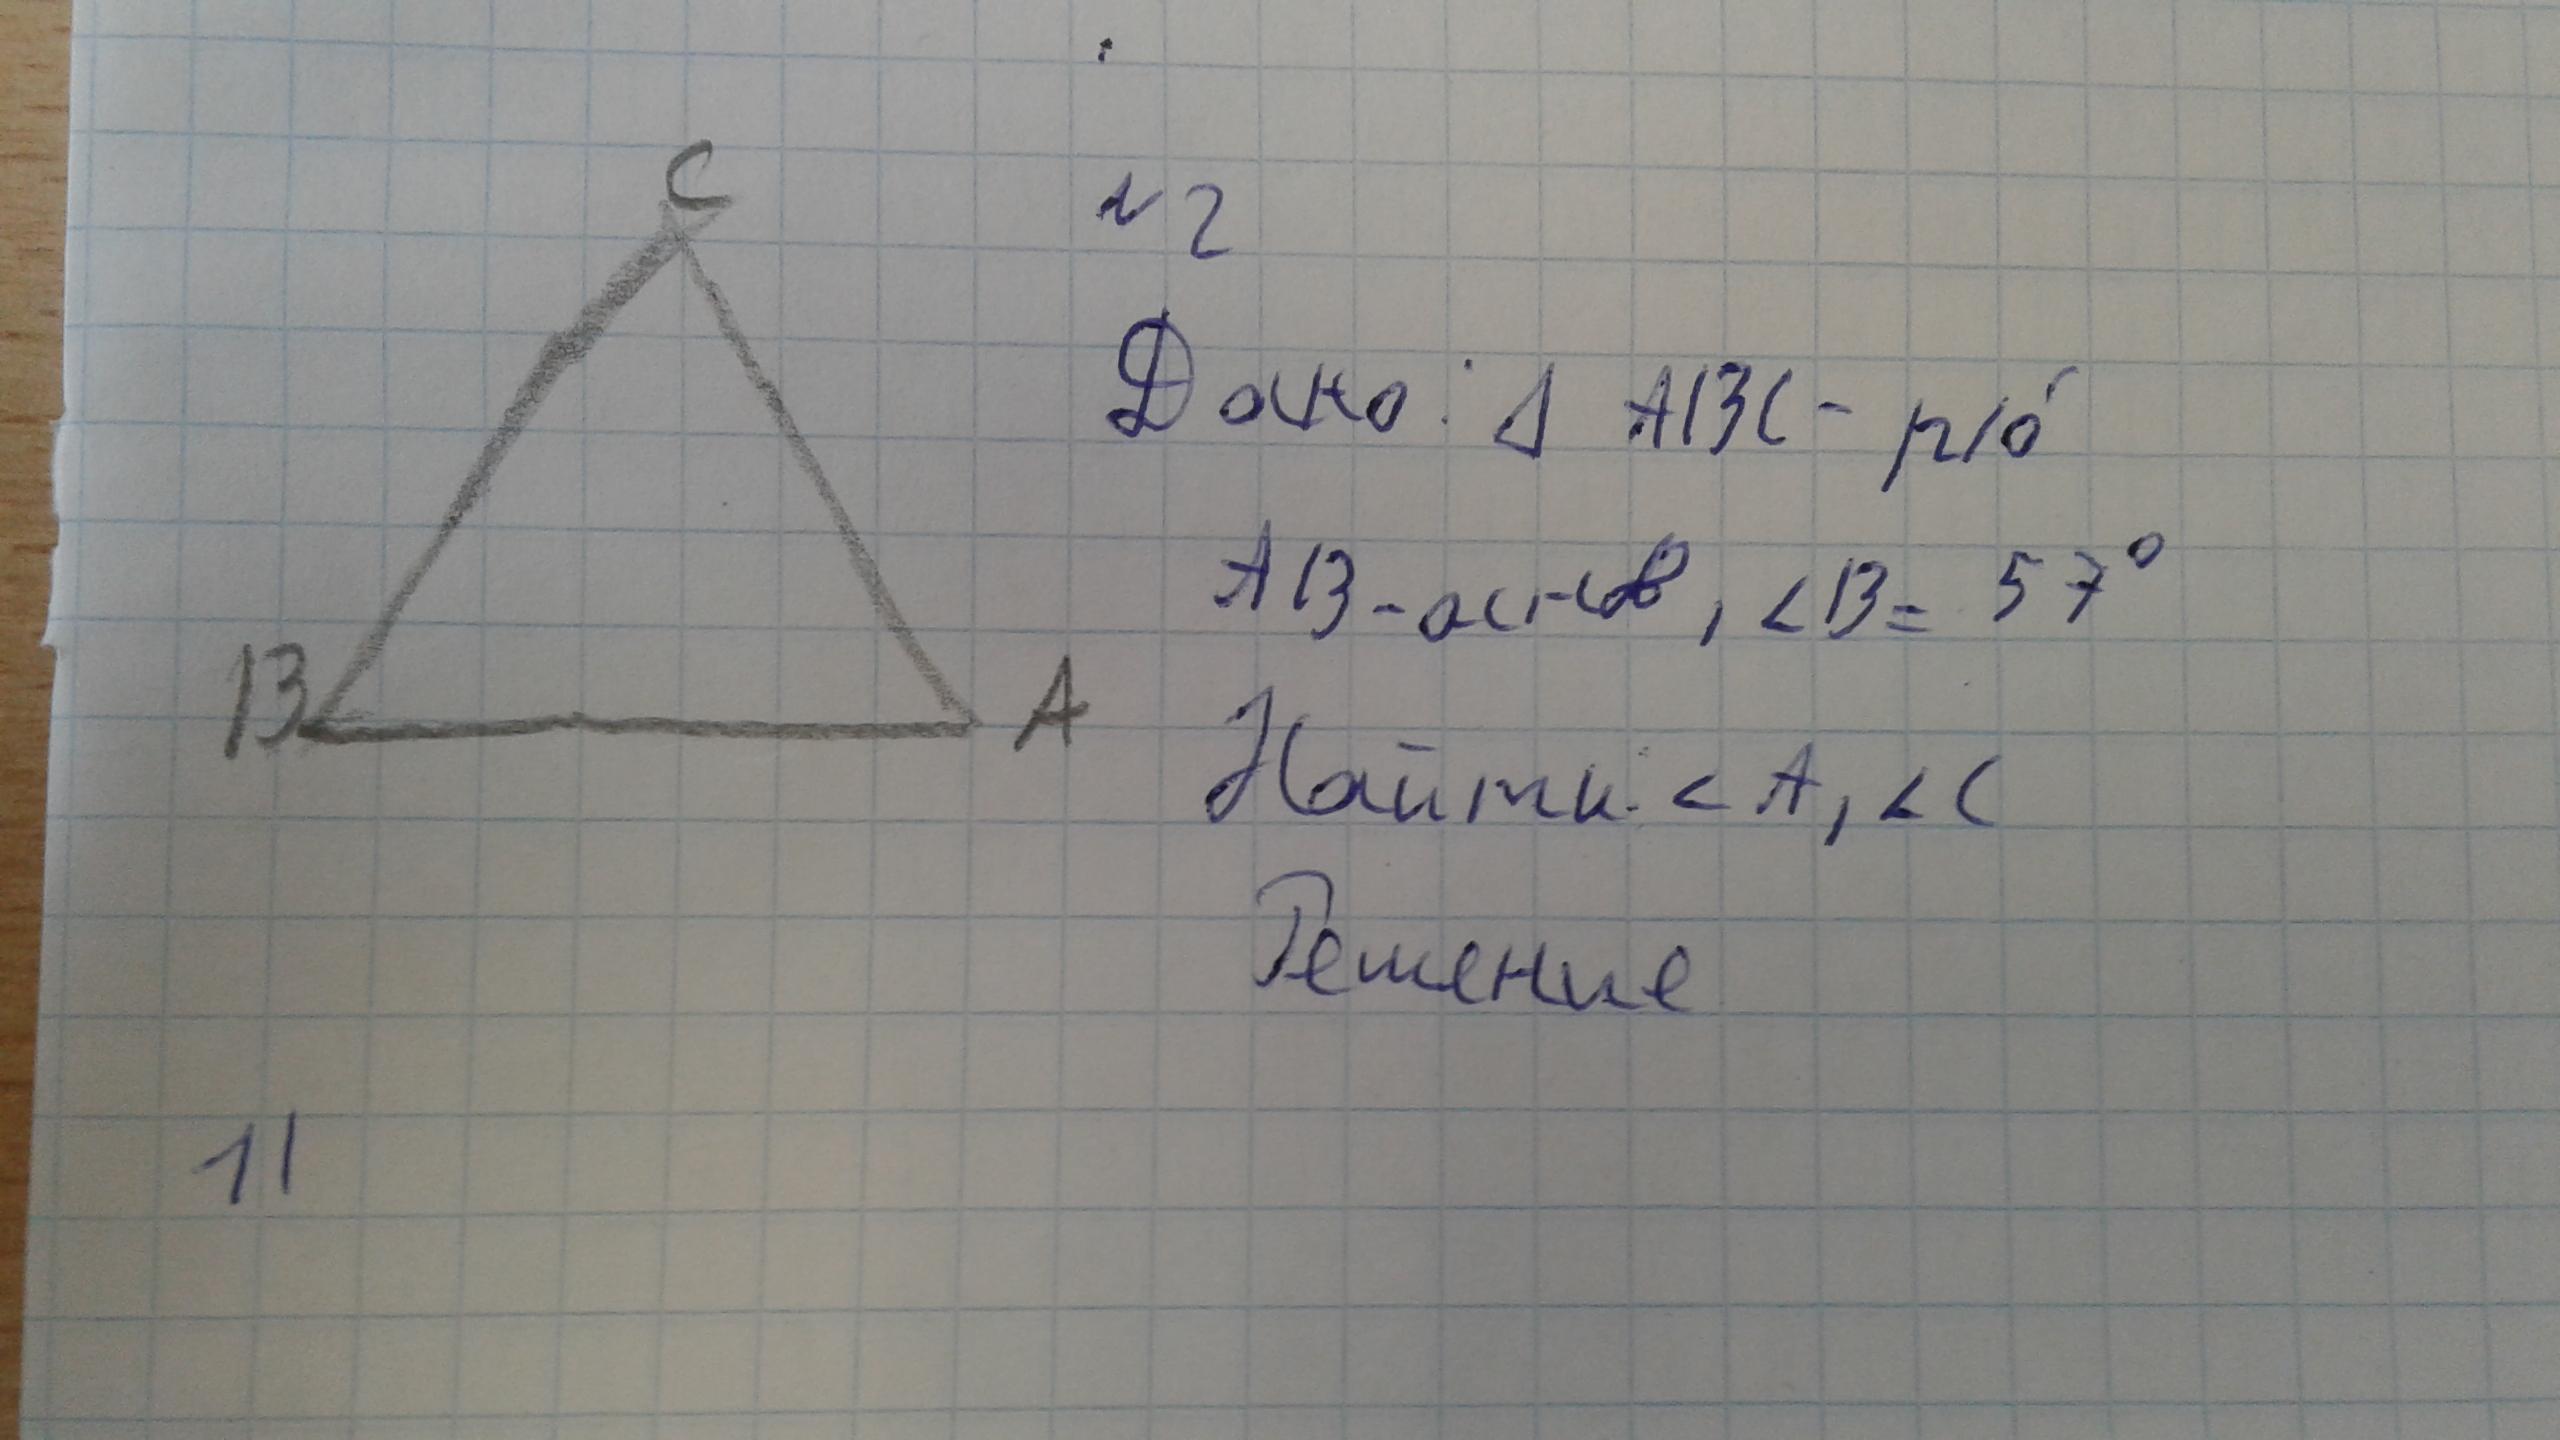 C
B
A
№2
Дано: Δ ABC - р/б
AB - основ, <B = 57°
Найти: <A, <C
Решение
11